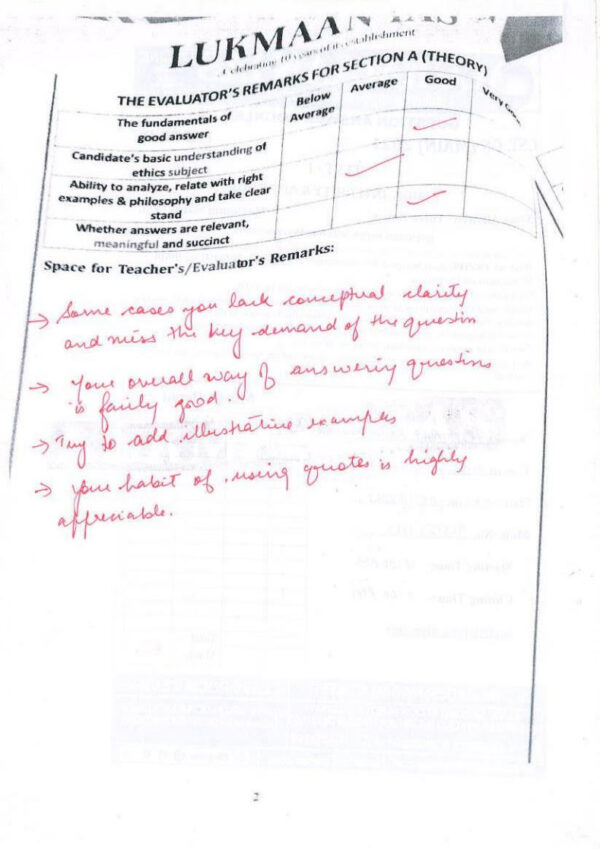 LUKMAAN IAS
Celebrating 10 years of its establishment
THE EVALUATOR'S REMARKS FOR SECTION A (THEORY)
Below
Average
Average
Good
Very
The fundamentals of
good answer
Candidate's basic understanding of
ethics subject
Ability to analyze, relate with right
examples & philosophy and take clear
stand
Whether answers are relevant,
meaningful and succinct
Space for Teacher's/Evaluator's Remarks:
→ Some cases you lack conceptual clarity
and miss the key demand of the question
→ Your overall way of answering questions
is fairly good.
→ Try to add illustrative examples
→ your habit of using quotes is highly
appreciable.
2